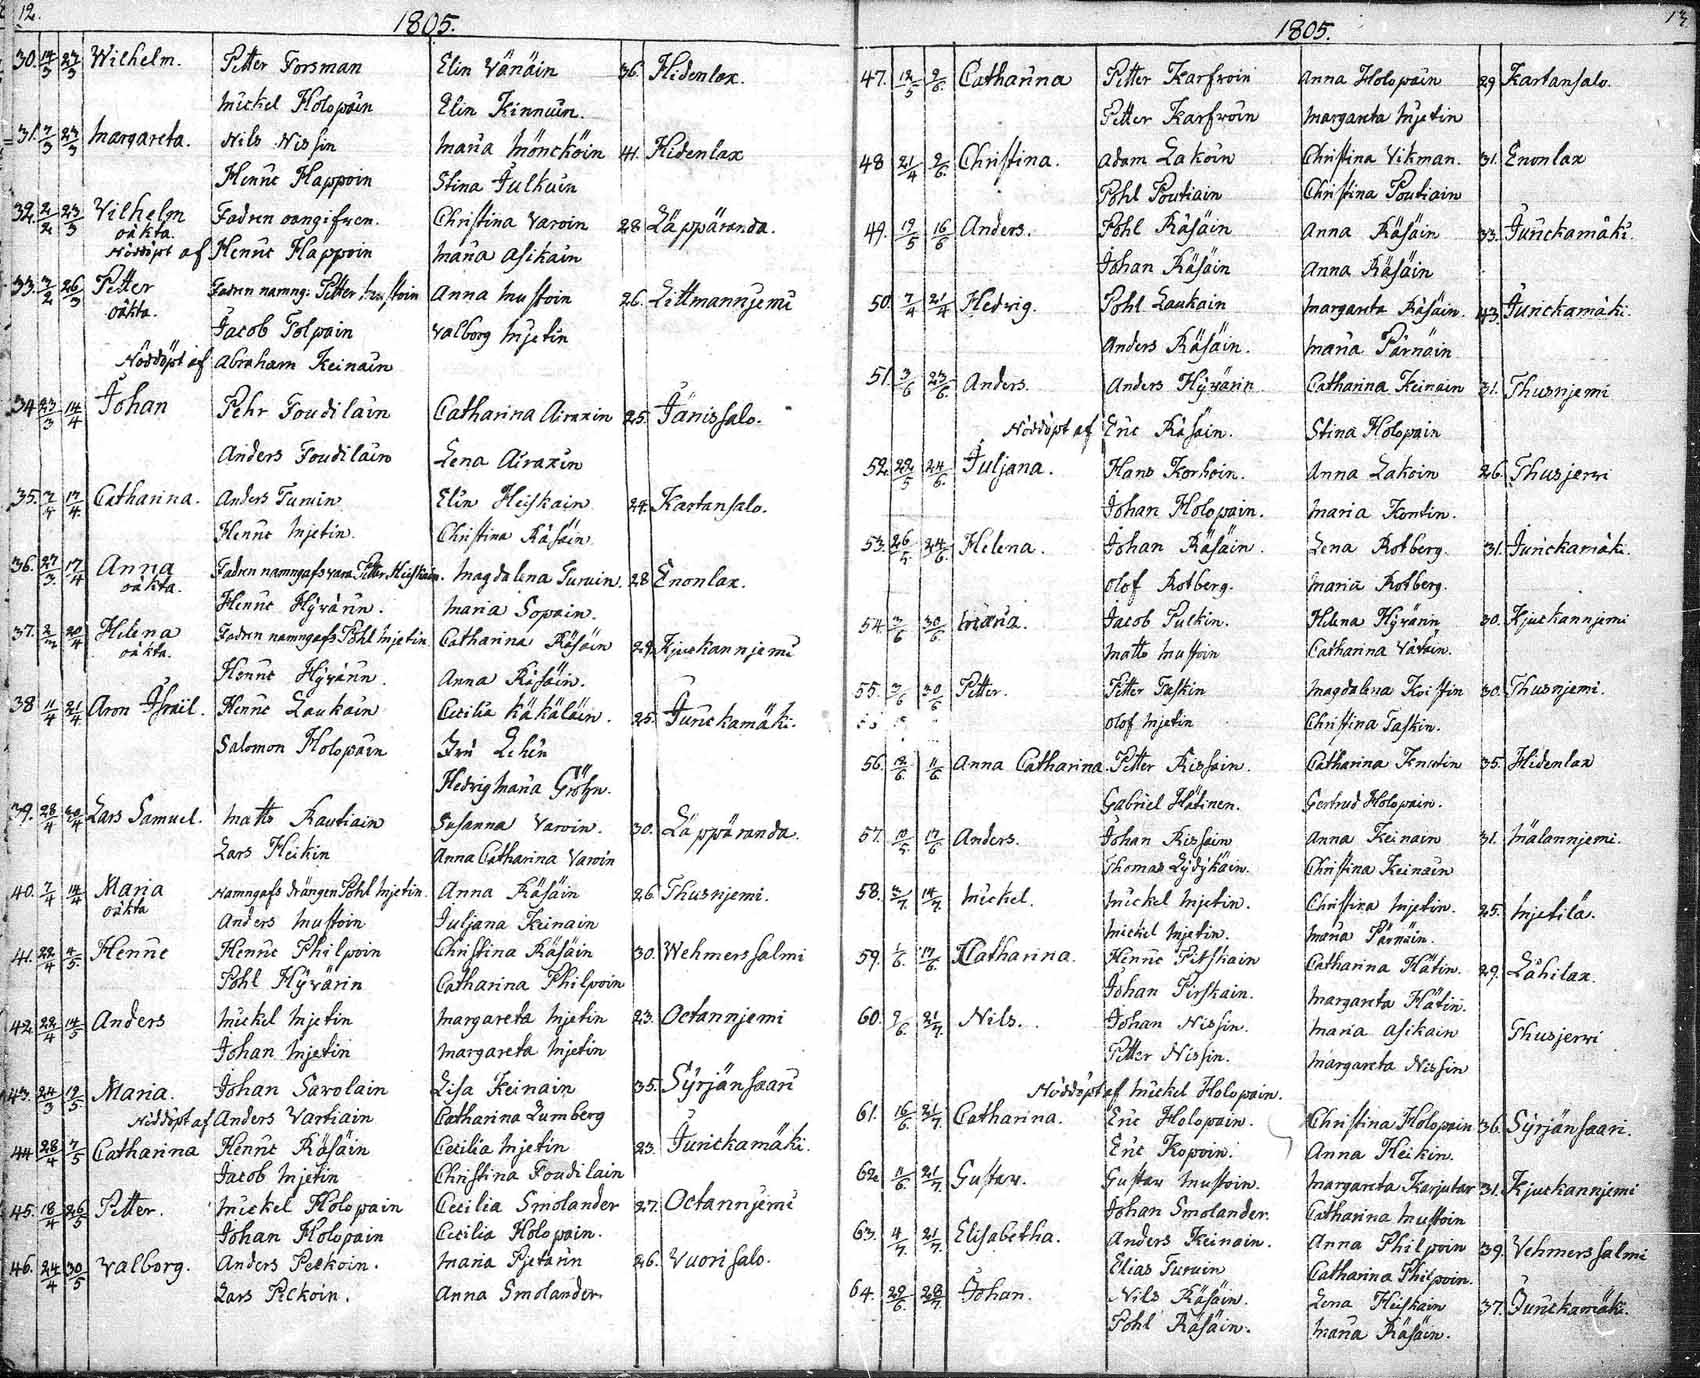 12.
1805.
30. 14/3 23/3 Wilhelm. Petter Forsman Elin Vänäin 36. Hidenlax.
Mickel Holopain Elin Kinnuin.
31. 7/3 23/3 Margareta. Nils Nissin Maria Möncköin 41. Hidenlax
Henric Happoin Stina Julkuin
32. 2/2 23/3 Vilhelm Fadren oangifven. Christina Varoin 28 Läppäranda.
oäkta.
Nöddöpt af Henric Happoin Maria Asikain
33. 3/2 26/3 Petter Fadren namng: Petter Mustoin Anna Mustoin 26. Littmannjemi
oäkta.
Jacob Tolpain Valborg Mjetin
Nöddöpt af Abraham Keinäin
34 23/3 14/4 Johan Pehr Toudilain Catharina Airaxin 25. Jänissalo.
Anders Toudilain Lena Airaxin
35. 7/4 17/4 Catharina. Anders Turuin Elin Heiskain 24. Kartansalo.
Henric Mjetin. Christina Räsäin
36. 27/3 17/4 Anna Fadren namngafs vara Petter Heiskain. Magdalena Turuin. 28 Enonlax.
oäkta.
Henric Hÿvärin. Maria Sopain.
37. 20/4 Helena Fadren namngafs Pohl Mjetin Catharina Räsäin 29. Kjuckannjemi
oäkta.
Henric Hÿvärin. Anna Räsäin.
38 11/4 21/4 Aron Israil. Henric Laukain Cecilia Käkäläin. 25. Junckamäki.
Salomon Holopain Brit Lehin
Hedvig Maria Gröhn.
39. 28/4 30/4 Lars Samuel. Matts Rautiain Susanna Varoin. 30. Läppäranda.
Lars Heikin Anna Catharina Varoin
40. 7/4 14/4 Maria Namngafs drängen Pohl Mjetin. Anna Räsäin 26. Thusnjemi.
oäkta
Anders Mustoin Juljana Keinain
41. 22/4 4/5 Henric Henric Philpoin Christina Räsäin 30. Wehmerssalmi
Pohl Hÿvärin Catharina Philpoin
42. 22/4 14/5 Anders Mickel Mjetin Margareta Mjetin 23. Octannjemi
Johan Mjetin Margareta Mjetin
43. 24/3 12/5 Maria. Johan Savolain Lisa Keinain 35. Sÿrjänsaari
Nöddöpt af Anders Vartiain Catharina Lumberg
44. 28/4 7/5 Catharina Henric Räsäin Cecilia Mjetin 23. Junckamäki.
Jacob Mjetin Christina Toudilain
45. 18/4 26/5 Petter. Mickel Holopain Cecilia Smolander 27. Octannjemi
Johan Holopain Cecilia Holopain.
46. 24/4 30/5 Valborg. Anders Peckoin. Maria Pjetarin 26. Vuorisalo.
Lars Peckoin. Anna Smolander.
13.
1805.
47. 12/5 2/6. Catharina Petter Karfvoin Anna Holopain 29 Kartansalo.
Petter Karfvoin Margareta Mjetin
48 21/4 2/6. Christina. Adam Lakoin Christina Vikman. 31. Enonlax
Pohl Poutiain Christina Poutiain
49. 19/5 16/6 Anders. Pohl Räsäin Anna Räsäin 33. Junckamäki.
Johan Räsäin Anna Räsäin
50. 7/4 21/4 Hedvig. Pohl Laukain Margareta Räsäin. 43. Junckamäki.
Anders Räsäin. Maria Pärnäin
51. 3/6 23/6. Anders. Anders Hÿvärin Catharina Keinain 31. Thusnjemi
Nöddöpt af Eric Räsäin. Stina Holopain
52. 22/5 24/6. Juljana. Hans Korhoin. Anna Lakoin 26. Thusjervi
Johan Holopain. Maria Kontin.
53. 26/5 24/6. Helena. Johan Räsäin. Lena Rotberg. 31. Junckamäki.
Olof Rotberg. Maria Rotberg.
54. 3/6 30/6. Maria. Jacob Pulkin. Helena Hÿvärin 30. Kjuckannjemi
Matts Mustoin Catharina Vätäin.
55. 3/6 30/6 Petter. Petter Taskin Magdalena Koistin 30. Thusnjemi.
Olof Mjetin Christina Taskin.
56. 12/6. 11/6. Anna Catharina. Petter Rissain. Catharina Knutin 35. Hidenlax
Gabriel Hätinen. Gertrud Holopain.
57. 10/5. 17/6 Anders. Johan Rissain Anna Keinain 31. Mälannjemi.
Thomas Lÿdÿkäin. Christina Keinain
58. 3/7. 14/7. Mickel. Mickel Mjetin. Christina Mjetin. 25. Mjetilä.
Mickel Mjetin. Maria Pärnäin.
59. 1/6. 17/6. Catharina. Henric Pitskain Catharina Hätin. 29. Lähilax.
Johan Pirskain. Margareta Hätin.
60. 9/6. 21/7. Nils. Johan Nissin. Maria Asikain Thusjervi
Petter Nissin. Margareta Nissin
Nöddöpt af Mickel Holopain.
61. 16/6. 21/7. Catharina. Eric Holopain. Christina Holopain 36. Sÿrjänsaari.
Eric Kopoin. Anna Heikin.
62. 11/6. 21/7. Gustav. Gustav Mustoin. Margareta Karjutar 31. Kjuckannjemi
Johan Smolander. Catharina Mustoin
63. 4/7. 21/7. Elisabetha. Anders Keinain. Anna Philpoin 39. Vehmerssalmi
Elias Turuin Catharina Philpoin.
64. 22/6. 28/7. Johan. Nils Räsäin. Lena Heiskain 37. Junckamäki.
Pohl Räsäin. Maria Räsäin.